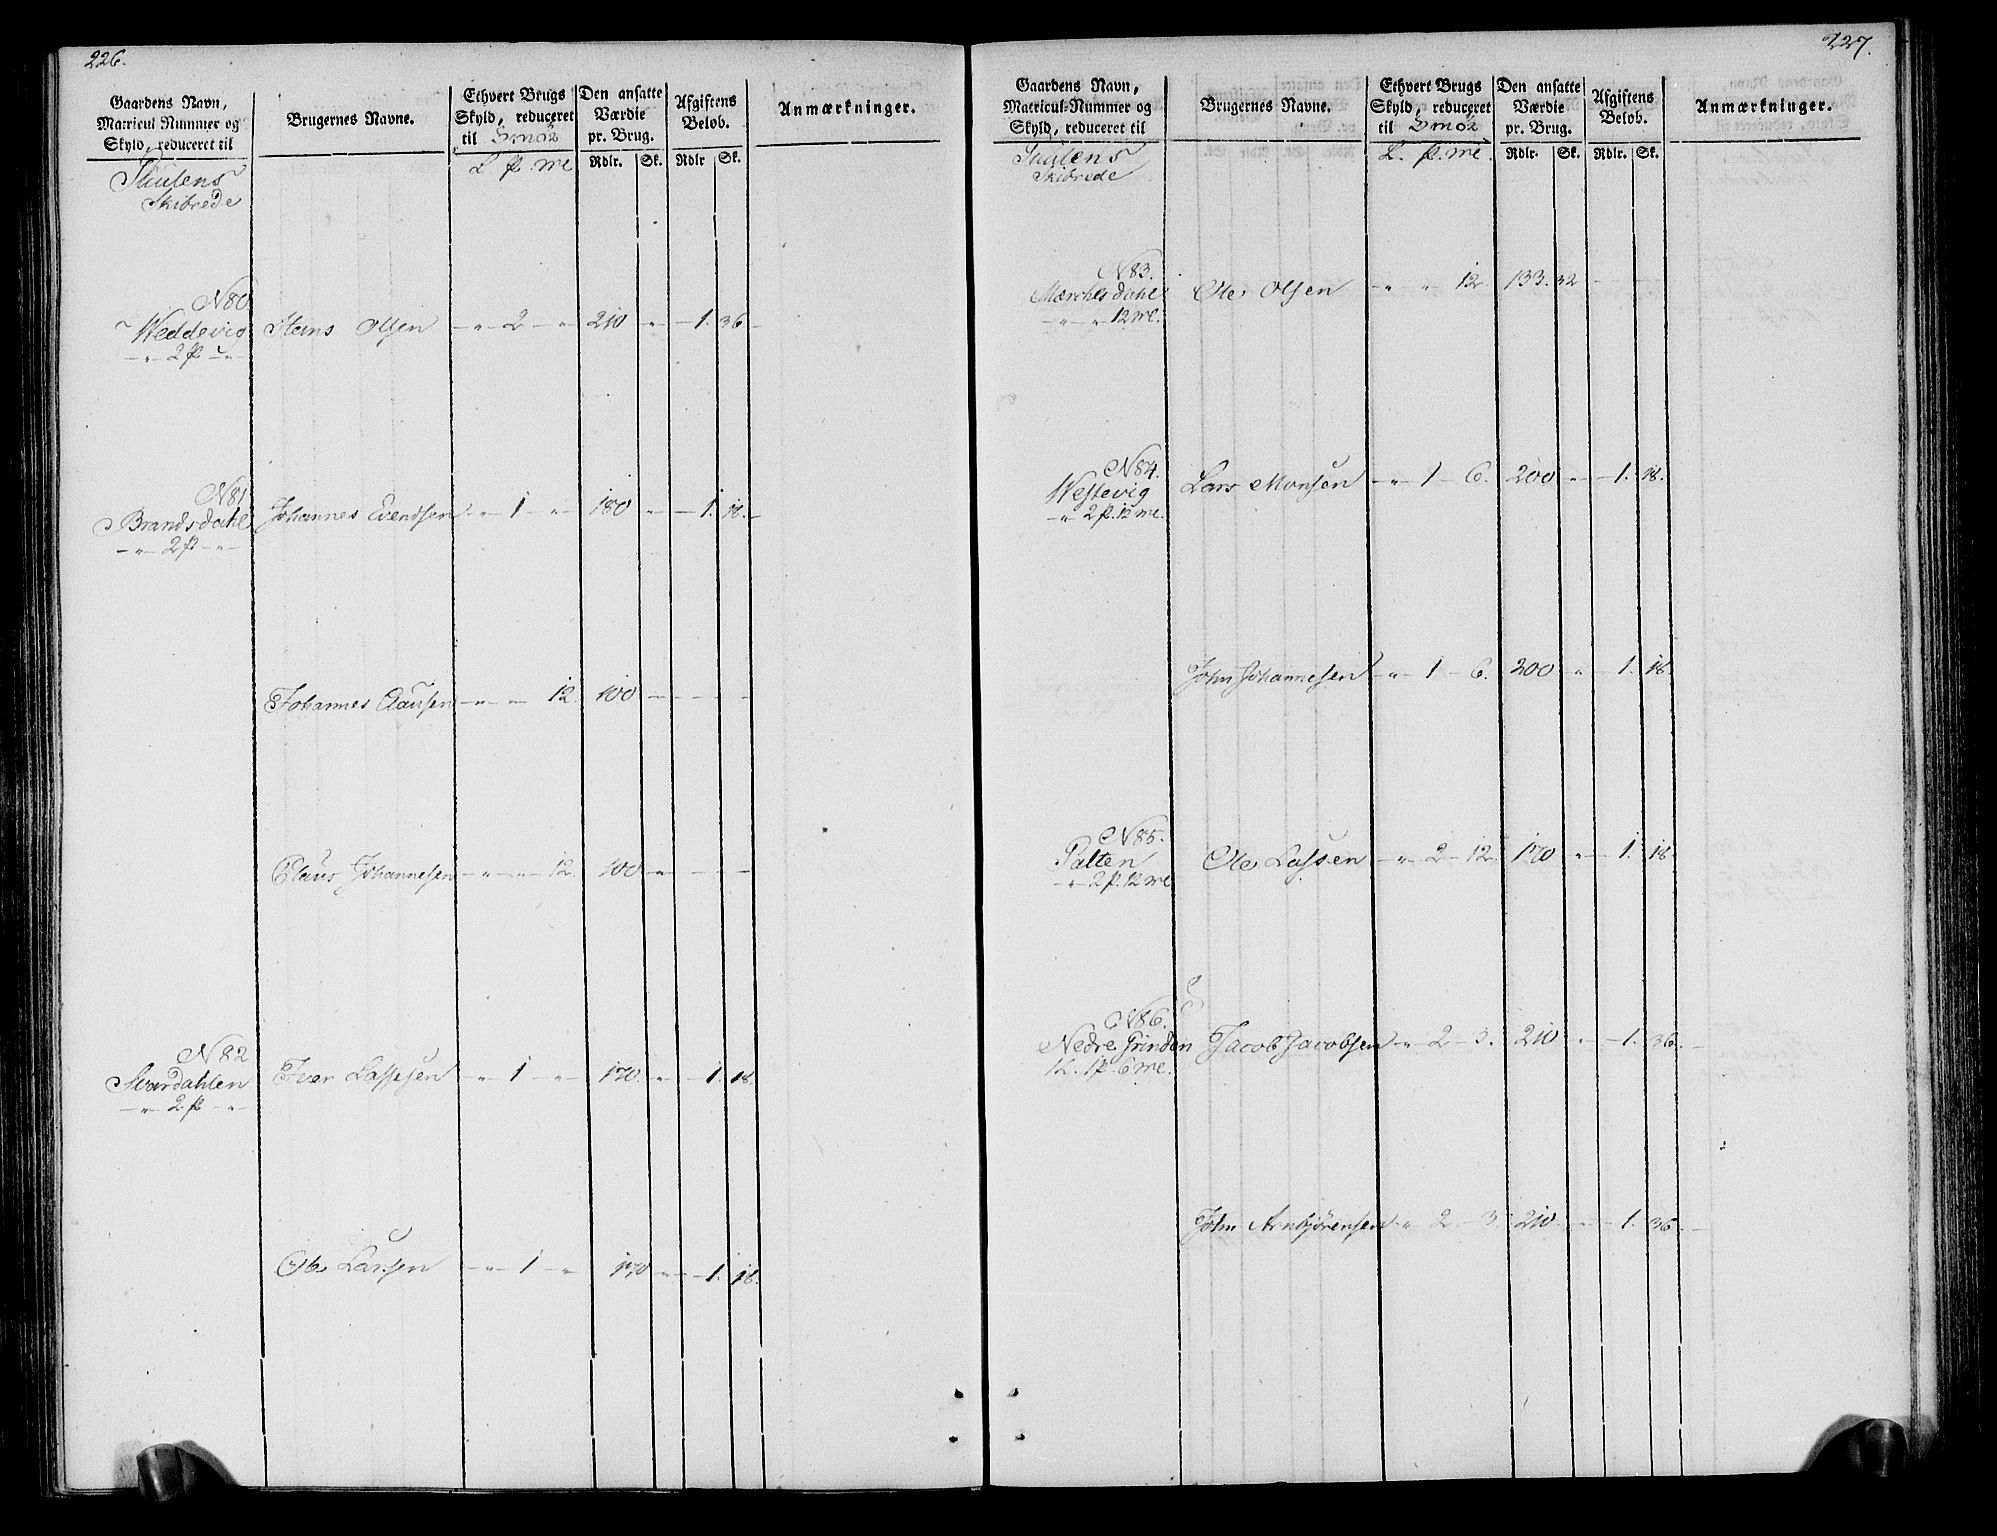 226.
Gaardens Navn, Matricul Nummer og Skyld, reduceret til
Brugernes Navne.
Ethvert Brugs Skyld, reduceret til Smör
Den ansatte Værdie pr. Brug.
Afgiftens Beløb.
Anmærkninger.
L p me
Rdlr. Sk. Rdlr Sk.
Skibrede
N80
Weddevig Hans Olsen - " - 2 - " 210 " - 1. 36 -
- " - 2 p - " -
N81
Brandsdahl Johannes Evensen - " - 1 - " 180 " - 1. 18. -
- " - 2 p - " -
Johannes Clausen - " - " - 12. 100 - - - -
Claus Johannesen - " - " - 12. 100 - - - -
N82
Svardahlen Iver Lassesen - " - 1 - " - 170. " - 1. 18.
- " - 2 p - " -
Ole Larsen - " - 1 - " 170 - " - 1. 18.
227.
Gaardens Navn, Matricul-Nummer og Skyld, reduceret til
Brugernes Navne.
Ethvert Brugs Skyld, reduceret til Smör
Den ansatte Værdie pr. Brug.
Afgiftens Beløb.
Anmærkninger.
L. p. me.
Rdlr. Sk. Rdlr. Sk.
Skibrede
N83.
Mærchesdahl Ole Olsen - " " 12 133. 32 - - -
- " - " 12 me.
N84.
Westevig Lars Monsen - " - 1 - 6. 200 " - 1. 18.
- " 2 p. 12 me.
John Johannesen - " - 1 - 6. 200 " - 1. 18.
N85.
Palten Ole Lassen - " - 2 - 12. 170 " - 1. 18
- " - 2 p. 12 me
N86.
Nedre Grinden Jacob Jacobsen - " - 2 - 3. 210 " - 1. 36. -
1L. 1p. 6 me.
John Arnbjörensen - " - 2 - 3. 210. " - 1. 36 -